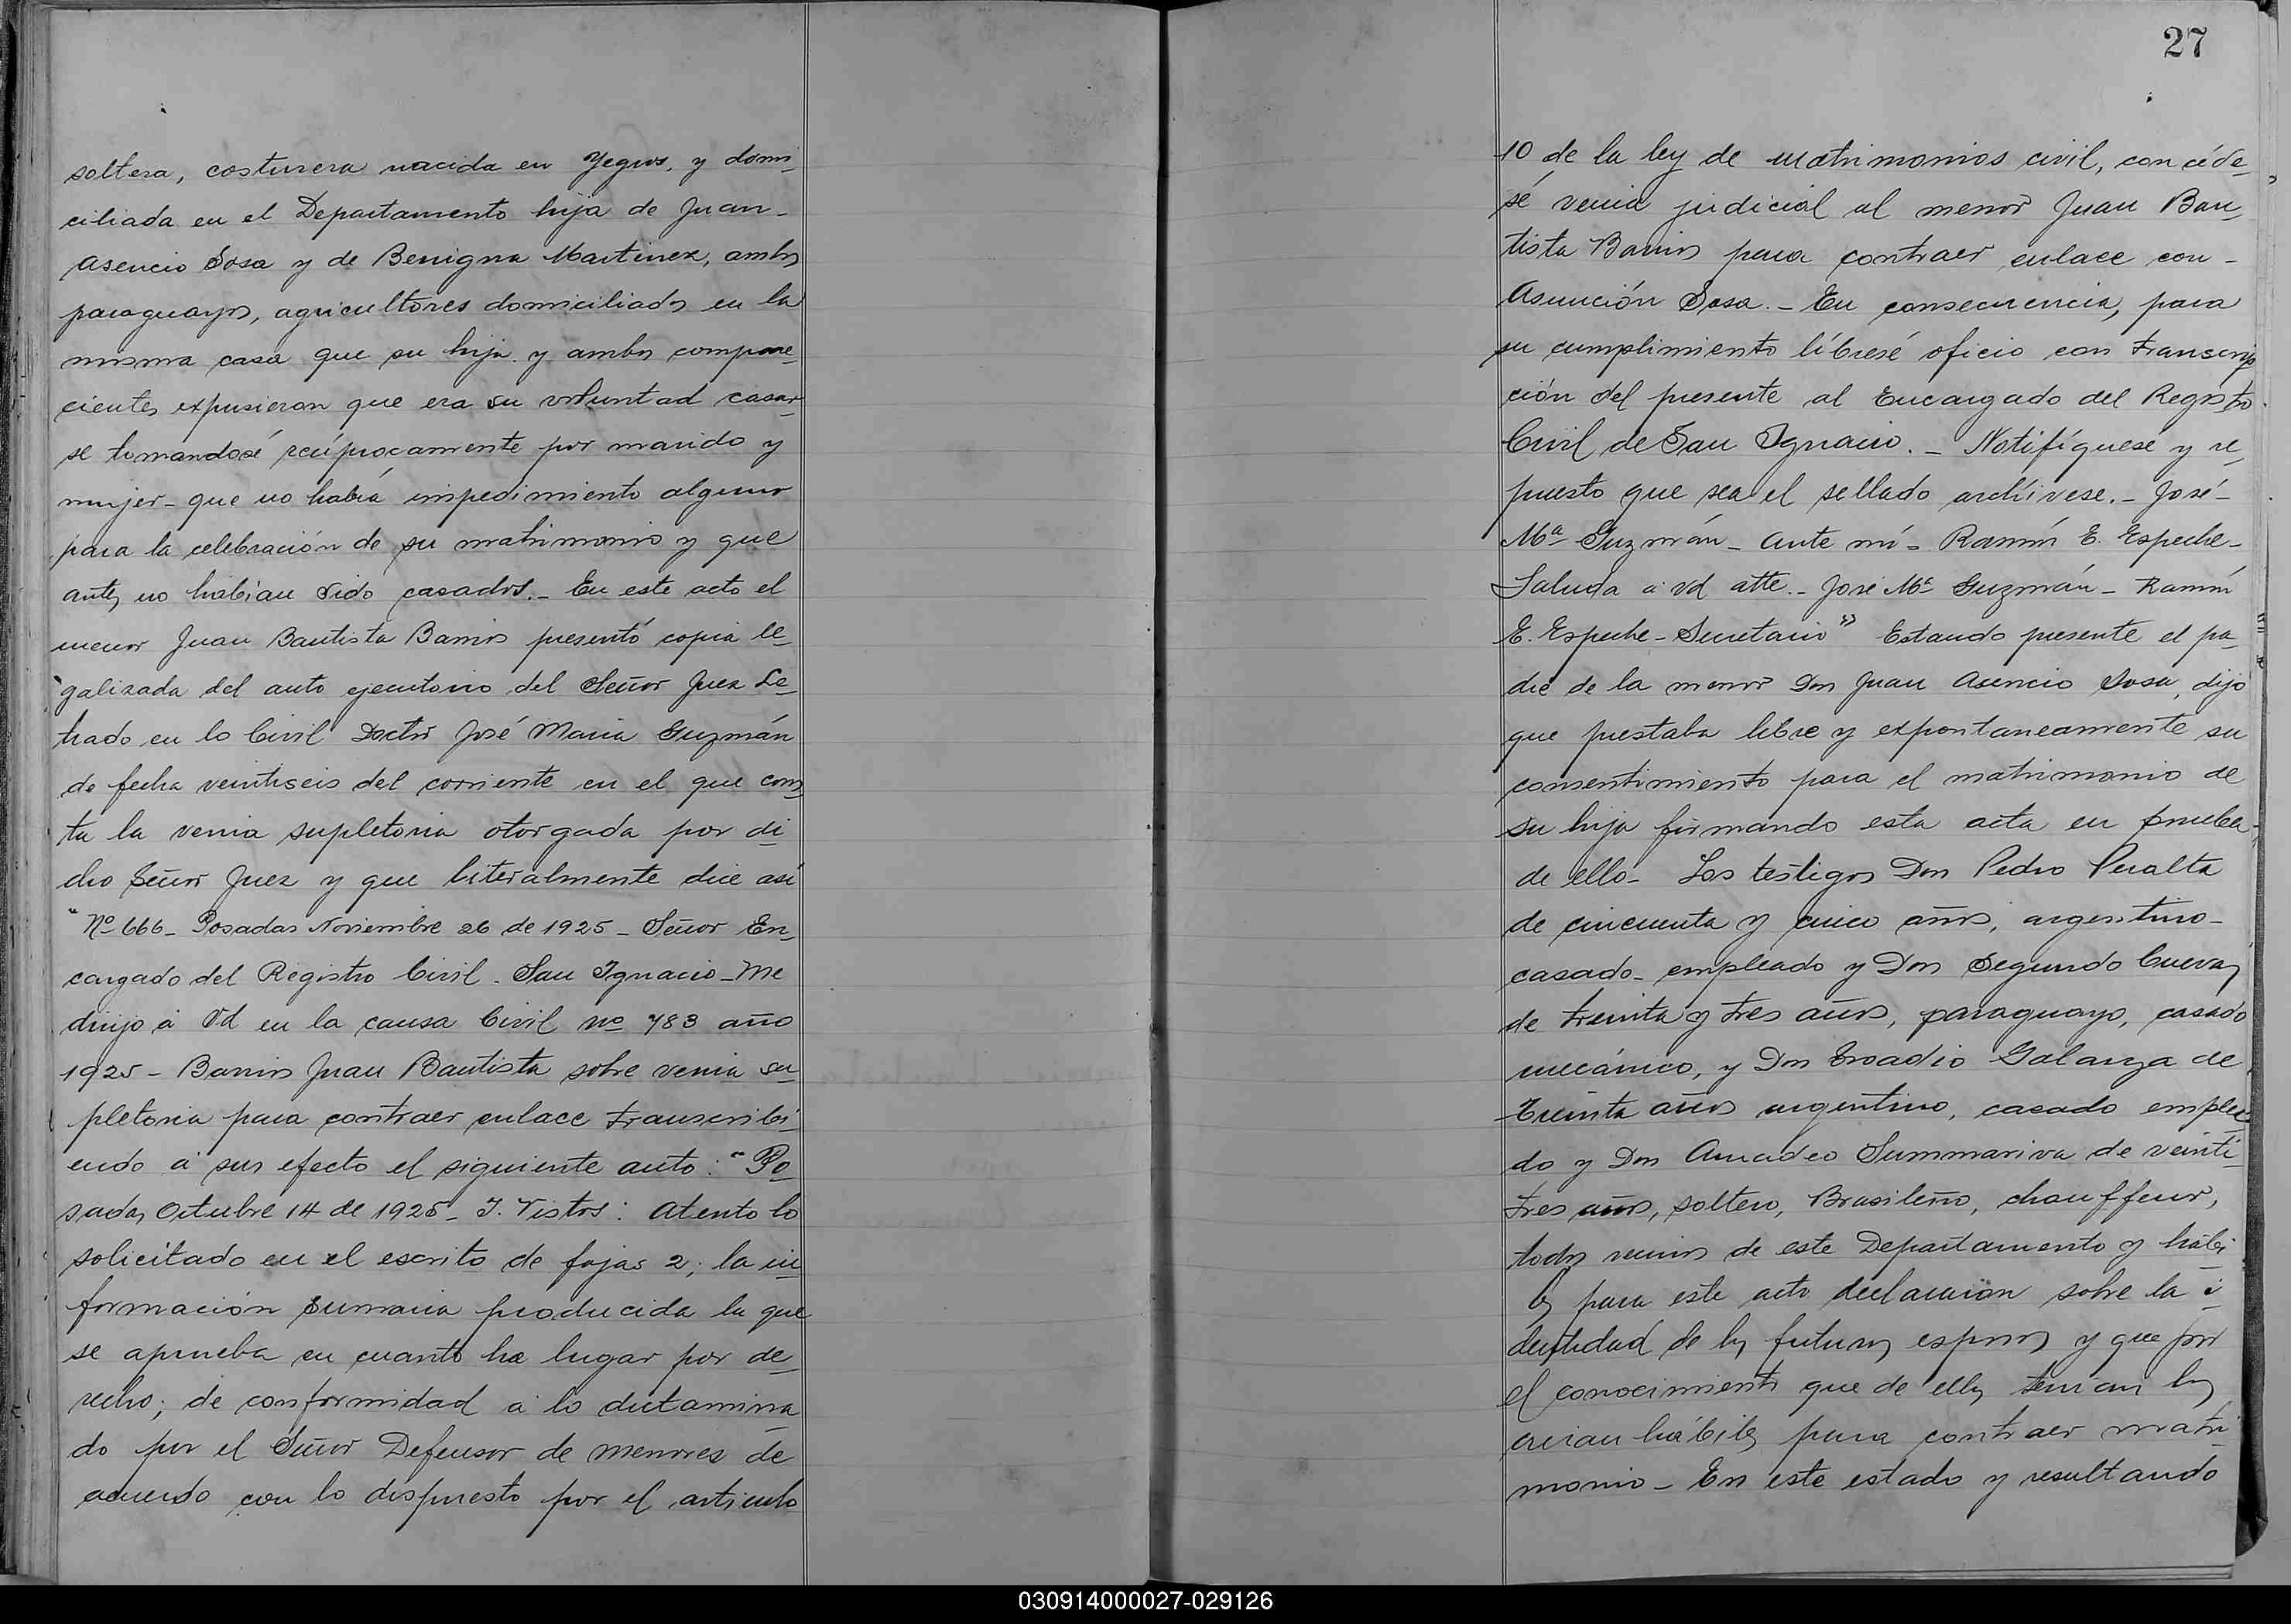 soltera, costurera nacida en Yegros, y domi-
ciliada en el Departamento hija de Juan-
Asencio Sosa y de Benigna Martinez, ambos
paraguayos, agricultores domiciliados en la
misma casa que su hija y ambos compare-
cientes expusieron que era su voluntad casar-
se tomandosé recíprocamente por marido y
mujer- que no había impedimiento alguno
para la celebración de su matrimonio y que
antes no habían sido casados.- En este acto el
menor Juan Bautista Barrios presentó copia le-
galizada del auto ejecutorio del Señor Juez Le-
trado en lo Civil Doctor José Maria Guzmán
de fecha veintiseis del corriente en el que cons-
ta la venia supletoria otorgada por di-
cho Señor Juez y que literalmente dice así
"Nº 666- Posadas Noviembre 26 de 1925- Señor En-
cargado del Registro Civil- San Ignacio- Me
dirijo á Vd en la causa Civil nº 783 año
1925- Barrios Juan Bautista sobre venia su-
pletoria para contraer enlace transcribi-
endo á sus efecto el siguiente auto: "Po-
sadas Octubre 14 de 1925- Y. Vistos: Atento lo
solicitado en el escrito de fojas 2; la in-
formación sumaria producida la que
se aprueba en cuanto ha lugar por de-
recho; de conformidad á lo dictamina-
do por el Señor Defensor de Menores de
acuerdo con lo dispuesto por el articulo
27
10 de la ley de matrimonios civil, concéde-
sé venia judicial al menor Juan Bau-
tista Barrios para contraer enlace con-
Asunción Sosa.- En consecuencia, para
su cumplimiento líbresé oficio con transcrip-
ción del presente al Encargado del Registro
Civil de San Ignacio.- Notifíquese y re-
puesto que sea el sellado archívese.- José-
Mª Guzmán- Ante mí- Ramón E. Espeche-
Saluda á vd atte.- José Mª Guzmán- Ramón
E. Espeche- Secretario" Estando presente el pa-
dre de la menor Don Juan Asencio Sosa, dijo
que prestaba libre y expontaneamente su
consentimiento para el matrimonio de
su hija firmando esta acta en prueba-
de ello- Los testigos Don Pedro Peralta
de cincuenta y cinco años, argentino-
casado- empleado y Don Segundo Cuevas
de treinta y tres años, paraguayo, casado
mecánico, y Don Eroadio Galarza de
treinta años argentino, casado emplea-
do y Don Amadeo Summariva de veinti-
tres años, soltero, Brasileño, chauffeur,
todos vecinos de este Departamento y hábi-
les para este acto declararon sobre la i-
dentidad de los futuros esposos y que por
el conocimiento que de ellos tenían los
creían hábiles para contraer matri-
monio- En este estado y resultando
030914000027-029126